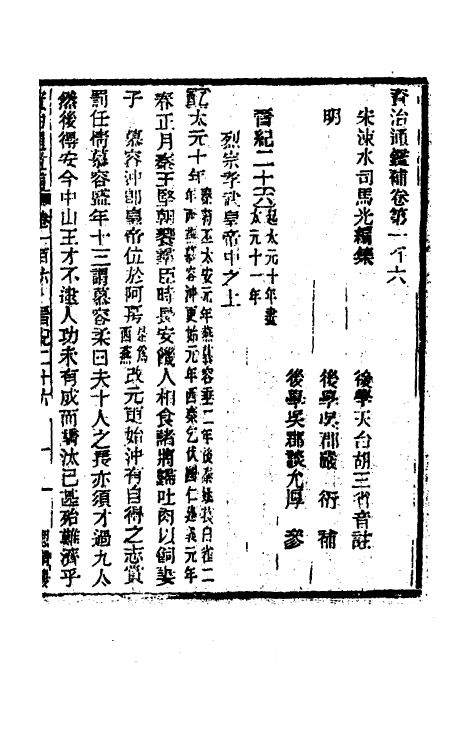 資治通鑑補卷第一百六
宋涑水司馬光編集　後學天台胡三省音註
明　後學吳郡嚴　衍　補
後學吳郡談允厚　參
晉紀二十六起太元十年盡太元十一年
烈宗孝武皇帝中之上
乙酉太元十年秦苻丕太安元年燕慕容垂二年後秦姚萇白雀二年西燕慕容沖更始元年西秦乞伏國仁建義元年
春正月秦王堅朝饗羣臣時長安饑人相食諸將歸吐肉以飼妻
子　慕容沖卽皇帝位於阿房是爲西燕改元更始沖有自得之志賞
罰任情慕容盛年十三謂慕容柔曰夫十人之長亦須才過九人
然後得安今中山王才不逮人功未有成而驕汰已甚殆難濟乎
資治通鑑補　卷一百六　晉紀二十六　一　思補樓